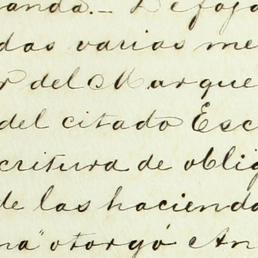 anda.- De foja
das varias me
r del Marque
del citado Esc
critura de oblig
de las hacienda
na" otorgó An